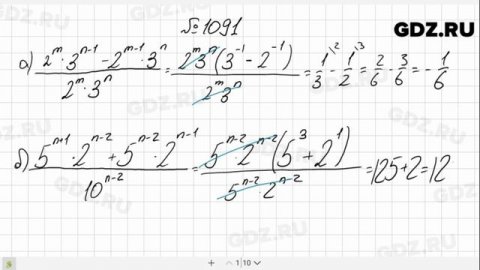 №1091
GDZ.RU
а) (2^m · 3^(n-1) - 2^(m-1) · 3^n) / (2^m · 3^n) = (2^m 3^n (3^(-1) - 2^(-1))) / (2^m 3^n) = 1/3 \2 - 1/2 \3 = 2/6 - 3/6 = - 1/6
б) (5^(n+1) · 2^(n-2) + 5^(n-2) · 2^(n-1)) / 10^(n-2) = (5^(n-2) · 2^(n-2) (5^3 + 2^1)) / (5^(n-2) · 2^(n-2)) = 125+2=12
+ 1|10